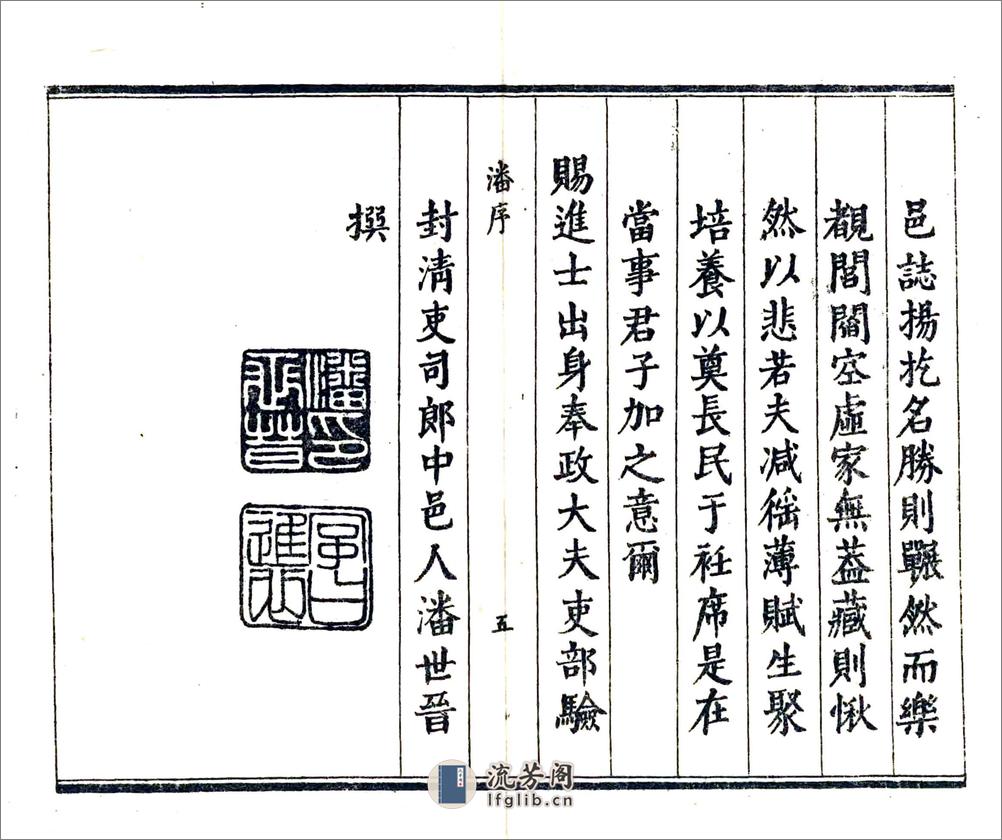 邑誌揚扢名勝則囅然而樂
覩閭閻空虛家無葢藏則愀
然以悲若夫减徭薄賦生聚
培養以奠長民于衽席是在
當事君子加之意爾
賜進士出身奉政大夫吏部驗
潘序
五
封清吏司郎中邑人潘世晉
撰
潘印世晉
流芳阁
lfglib.cn